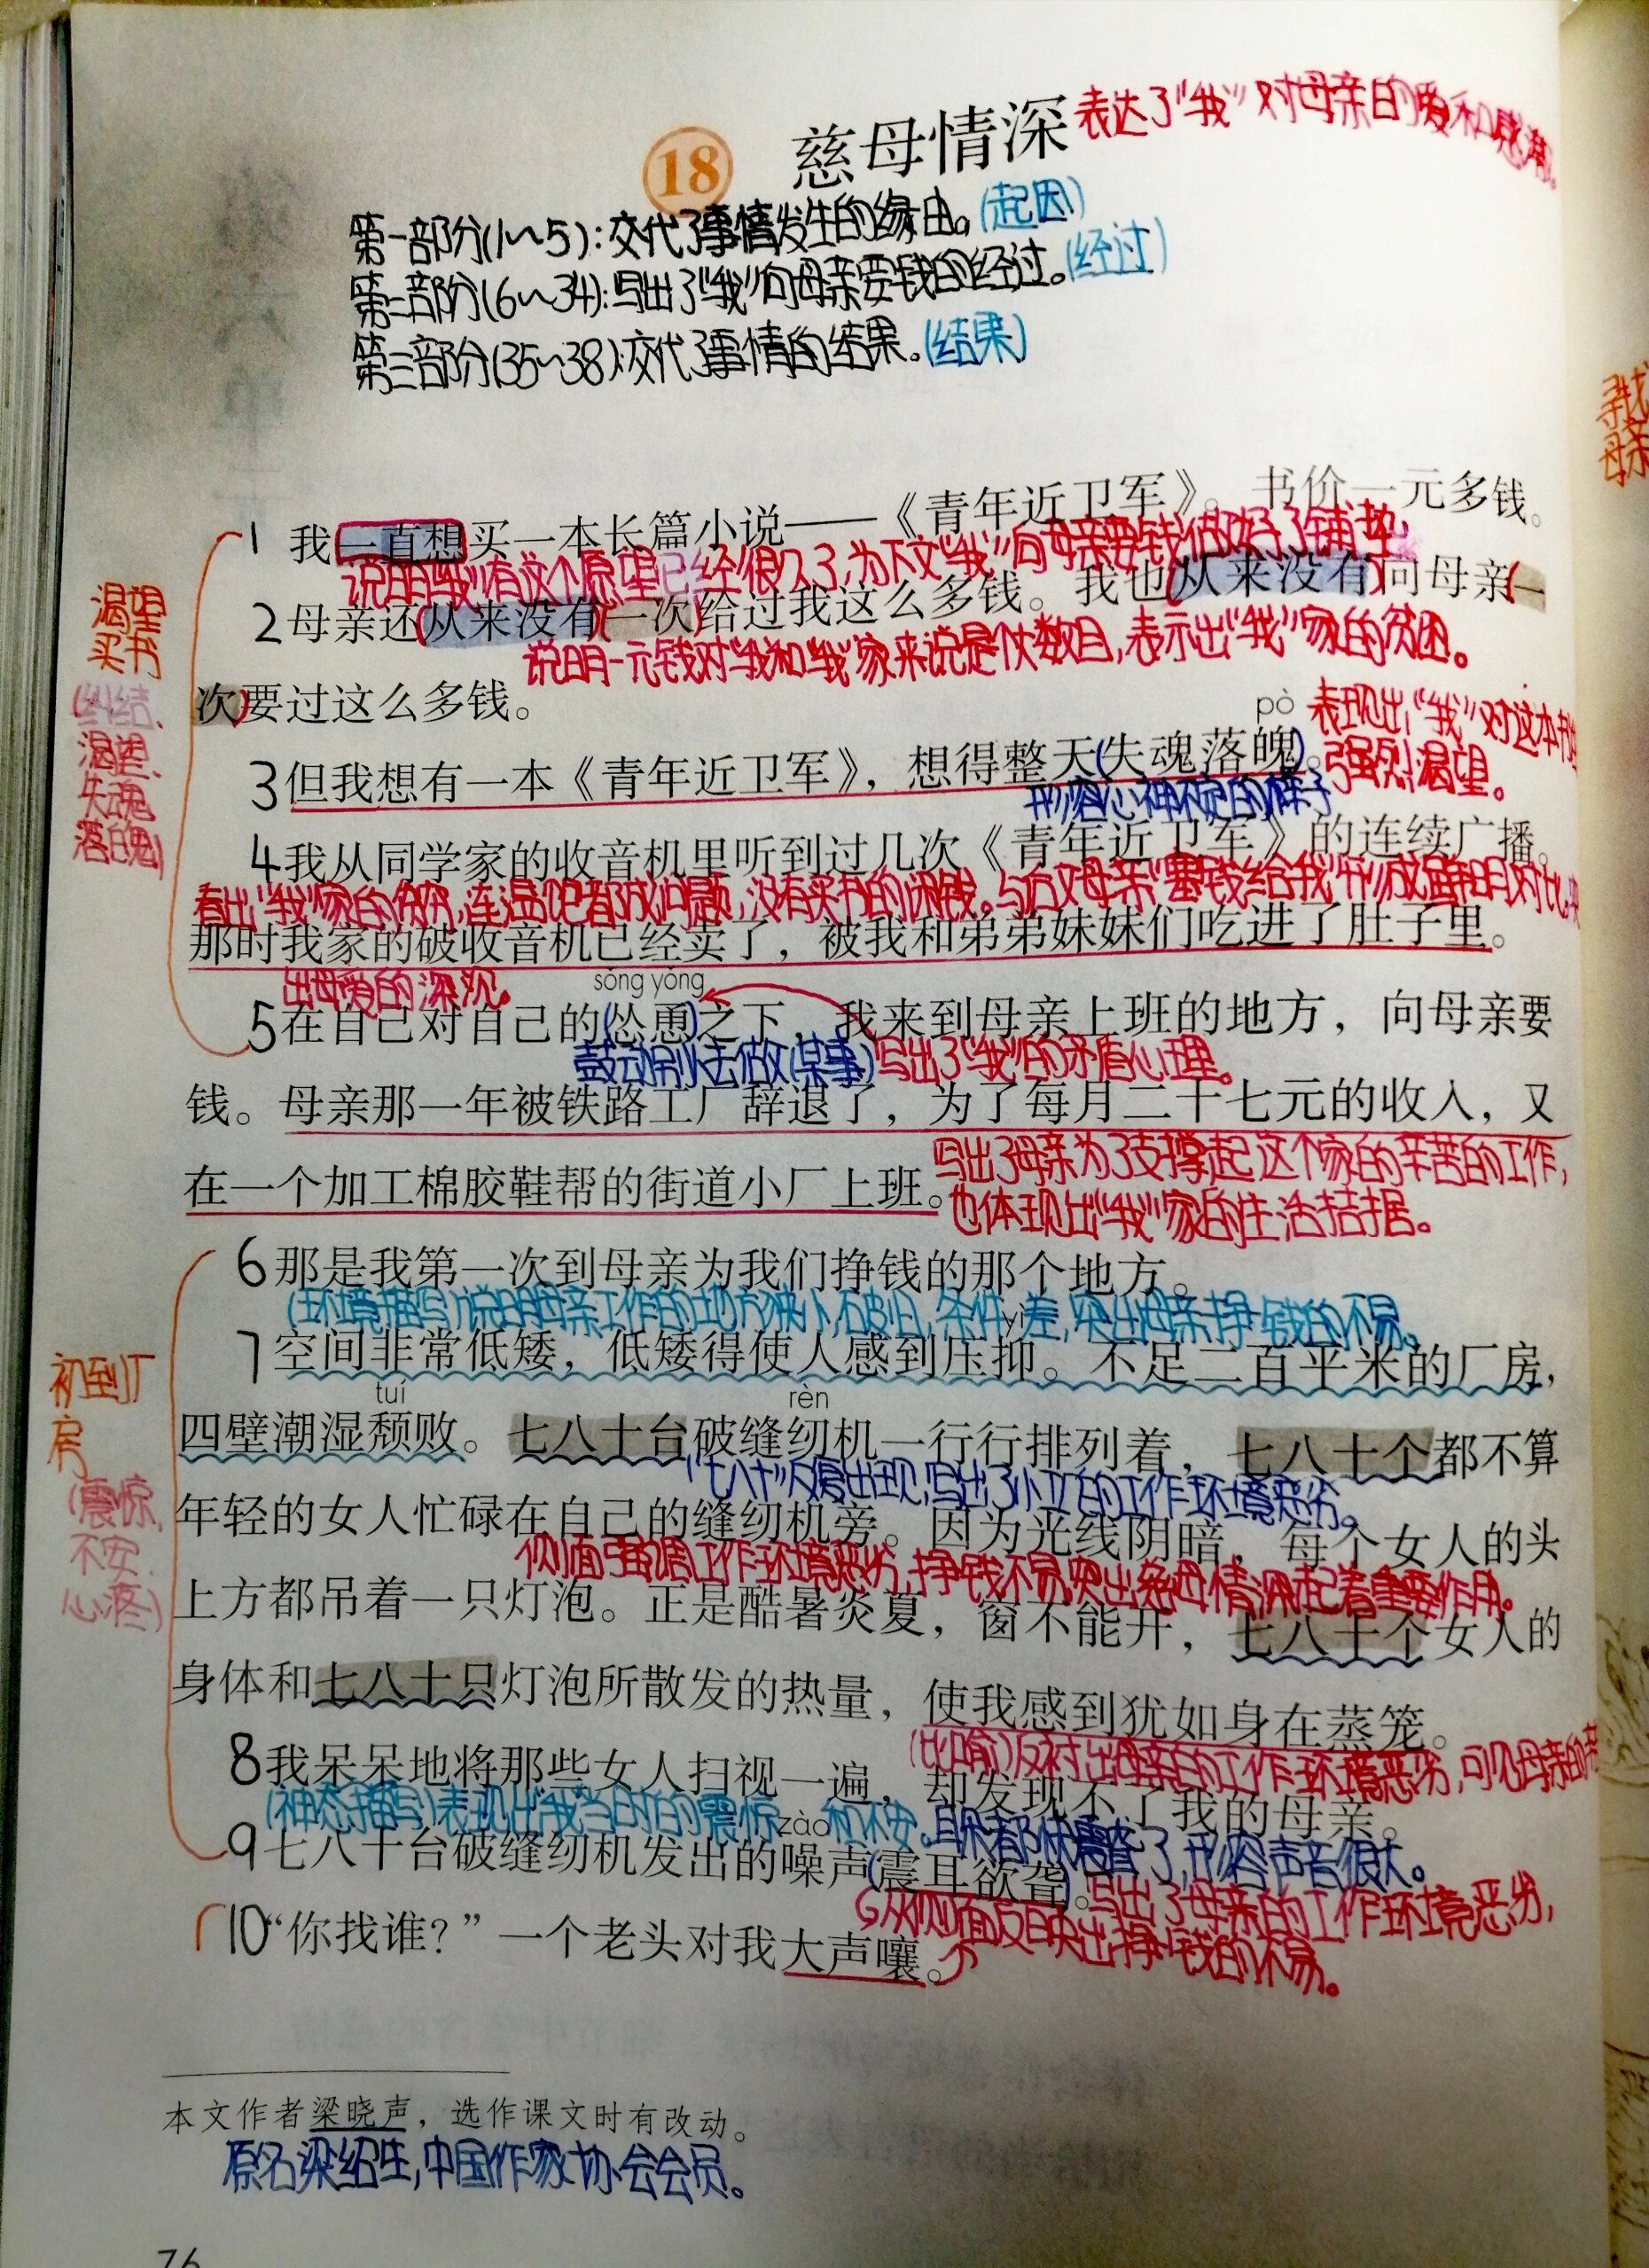 18 慈母情深 表达了“我”对母亲的爱和感激。
第一部分(1~5):交代了事情发生的缘由。(起因)
第二部分(6~34):写出了“我”向母亲要钱的经过。(经过)
第三部分(35~38):交代了事情的结果。(结果)
寻找
母亲
1 我一直想买一本长篇小说——《青年近卫军》。书价一元多钱。
说明“我”有这个愿望已经很久了,为下文“我”向母亲要钱做好了铺垫。
2 母亲还(从来没有)(一次)给过我这么多钱。我也(从来没有)向母亲(一
说明一元钱对“我”和“我”家来说是个大数目,表示出“我”家的贫困。
渴望
买书
(纠结、
渴望、
失魂
落魄)
次)要过这么多钱。
pò
表现出“我”对这本书的
强烈渴望。
3 但我想有一本《青年近卫军》，想得整天(失魂落魄)。
形容心神不定的样子
4 我从同学家的收音机里听到过几次《青年近卫军》的连续广播。
看出“我”家的贫穷,连温饱都成问题,没有买书的闲钱。与后文母亲“塞钱给我”形成鲜明对比,突
那时我家的破收音机已经卖了，被我和弟弟妹妹们吃进了肚子里。
出母爱的深沉。
sǒng yǒng
5 在自己对自己的(怂恿)之下，我来到母亲上班的地方，向母亲要
鼓动别人去做(某事) 写出了“我”的矛盾心理。
钱。母亲那一年被铁路工厂辞退了，为了每月二十七元的收入，又
写出了母亲为了支撑起这个家的辛苦的工作,
在一个加工棉胶鞋帮的街道小厂上班。
也体现出“我”家的生活拮据。
6 那是我第一次到母亲为我们挣钱的那个地方。
(环境描写)说明母亲工作的地方狭小,破旧,条件差,突出母亲挣钱的不易。
yì
7 空间非常低矮，低矮得使人感到压抑。不足二百平米的厂房，
初到厂
房
(震惊,
不安,
心疼)
tuí rèn
四壁潮湿颓败。七八十台破缝纫机一行行排列着，七八十个都不算
“七八十”反复出现,写出了小工厂的工作环境恶劣。
年轻的女人忙碌在自己的缝纫机旁。因为光线阴暗，每个女人的头
侧面强调工作环境恶劣,挣钱不易,突出慈母情深起着重要作用。
上方都吊着一只灯泡。正是酷暑炎夏，窗不能开，七八十个女人的
身体和七八十只灯泡所散发的热量，使我感到犹如身在蒸笼。
(比喻)反衬出母亲的工作环境恶劣,可见母亲的辛
8 我呆呆地将那些女人扫视一遍，却发现不了我的母亲。
(神态描写)表现出“我”当时的震惊和不安。
zào
耳朵都快震聋了,形容声音很大。
9 七八十台破缝纫机发出的噪声(震耳欲聋)。
写出了母亲的工作环境恶劣,
从侧面反映出挣钱的不易。
10 “你找谁？”一个老头对我大声嚷。
本文作者梁晓声，选作课文时有改动。
原名梁绍生,中国作家协会会员。
76